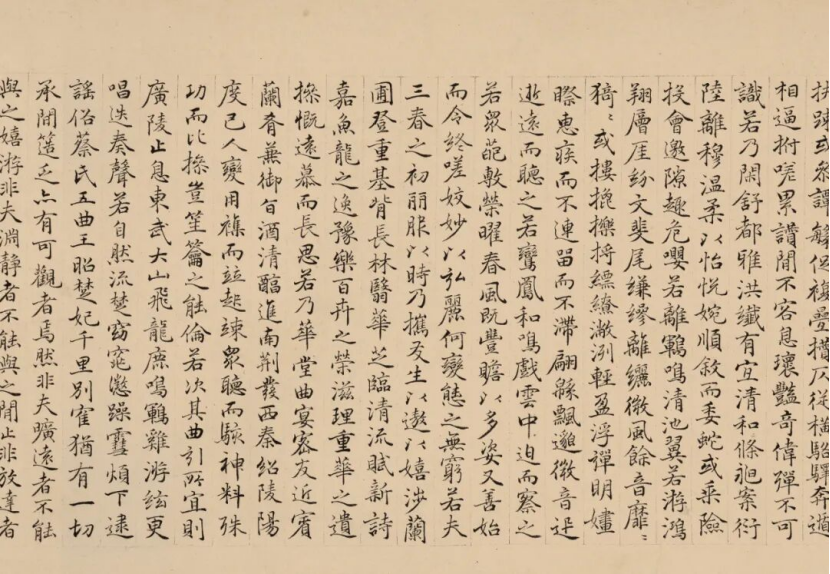 扶踈或參譚繁促複疊攢仄從橫駱驛奔遁
相逼拊嗟累讃間不容息瓌豔奇偉殫不可
識若乃閑舒都雅洪纖有宜清和條昶案衍
陸離穆温柔以怡悅婉順敘而委蛇或乘險
投會邀隙趣危嚶若離鵾鳴清池翼若游鴻
翔層厓紛文斐尾縑縿離纚微風餘音靡〻
猗〻或摟挽擽捋縹繚潎洌輕盈浮彈明嫿
瞭惠疾而不速留而不滯翩緜飄邈微音迅
逝遠而聽之若鸞鳳和鳴戲雲中迫而察之
若衆葩敷榮曜春風既豐贍以多姿又善始
而令終嗟姣妙以弘麗何變態之無窮若夫
三春之初丽服以時乃攜友生以遨以嬉涉蘭
圃登重基背長林翳華芝臨清流賦新詩
嘉魚龍之逸豫樂百卉之榮滋理重華之遺
操慨遠慕而長思若乃華堂曲宴密友近賓
蘭肴兼御旨酒清醇進南荆發西秦紹陵陽
度巴人變用襍而竝起竦衆聽而駭神料殊
功而比操豈笙籥之能倫若次其曲引所宜則
廣陵止息東武太山飛龍鹿鳴鵾雞游絃更
唱迭奏聲若自然流楚窈窕懲躁雪煩下逮
謠俗蔡氏五曲王昭楚妃千里別寉猶有一切
承間簉乏亦有可觀者焉然非夫曠遠者不能
與之嬉游非夫淵静者不能與之閒止非放達者